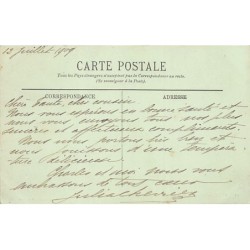 13 juillet 1909
CARTE POSTALE
Tous les Pays étrangers n'acceptent pas la Correspondance au recto.
(Se renseigner à la Poste).
CORRESPONDANCE ADRESSE
Cher tante, cher cousin
Nous vous espérons en bonne santé et
vous envoyons tous nos plus
sincères et affectueux compliments.
Nous nous portons très bien et
nous jouissons d'une
délicieuse.
Charles et moi nous vous
embrassons de tout cœur
Julia